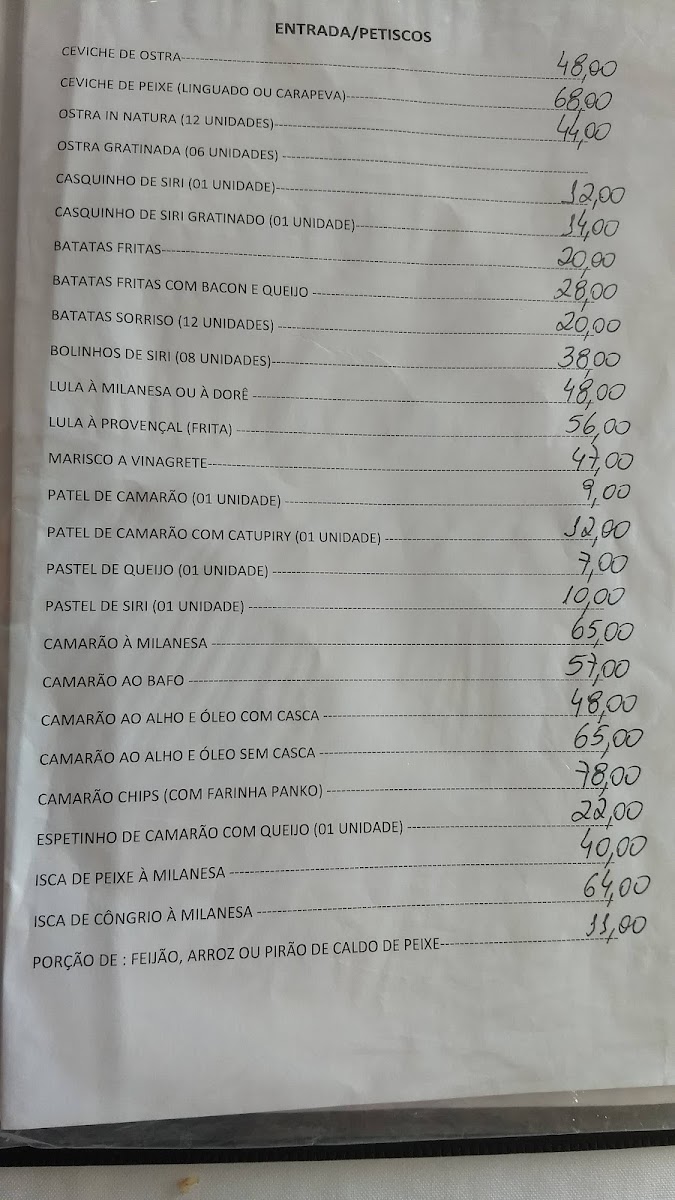 ENTRADA/PETISCOS
CEVICHE DE OSTRA 48,00
CEVICHE DE PEIXE (LINGUADO OU CARAPEVA) 68,00
OSTRA IN NATURA (12 UNIDADES) 44,00
OSTRA GRATINADA (06 UNIDADES)
CASQUINHO DE SIRI (01 UNIDADE) 12,00
CASQUINHO DE SIRI GRATINADO (01 UNIDADE) 14,00
BATATAS FRITAS 20,00
BATATAS FRITAS COM BACON E QUEIJO 28,00
BATATAS SORRISO (12 UNIDADES) 20,00
BOLINHOS DE SIRI (08 UNIDADES) 38,00
LULA À MILANESA OU À DORÊ 48,00
LULA À PROVENÇAL (FRITA) 56,00
MARISCO A VINAGRETE 47,00
PATEL DE CAMARÃO (01 UNIDADE) 9,00
PATEL DE CAMARÃO COM CATUPIRY (01 UNIDADE) 12,00
PASTEL DE QUEIJO (01 UNIDADE) 7,00
PASTEL DE SIRI (01 UNIDADE) 10,00
CAMARÃO À MILANESA 65,00
CAMARÃO AO BAFO 57,00
CAMARÃO AO ALHO E ÓLEO COM CASCA 48,00
CAMARÃO AO ALHO E ÓLEO SEM CASCA 65,00
CAMARÃO CHIPS (COM FARINHA PANKO) 78,00
ESPETINHO DE CAMARÃO COM QUEIJO (01 UNIDADE) 22,00
ISCA DE PEIXE À MILANESA 40,00
ISCA DE CÔNGRIO À MILANESA 64,00
PORÇÃO DE : FEIJÃO, ARROZ OU PIRÃO DE CALDO DE PEIXE 11,00